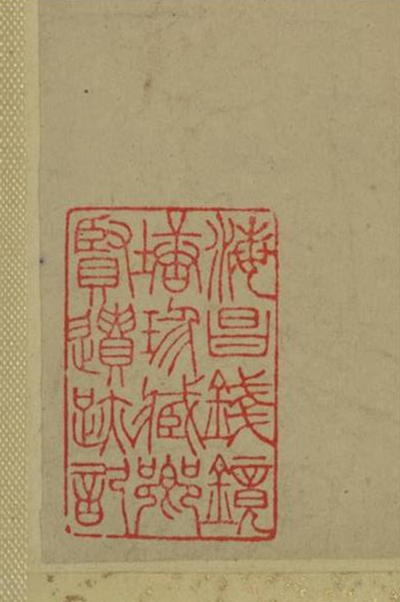 海昌錢鏡
塘珍藏鄉
賢遺跡記